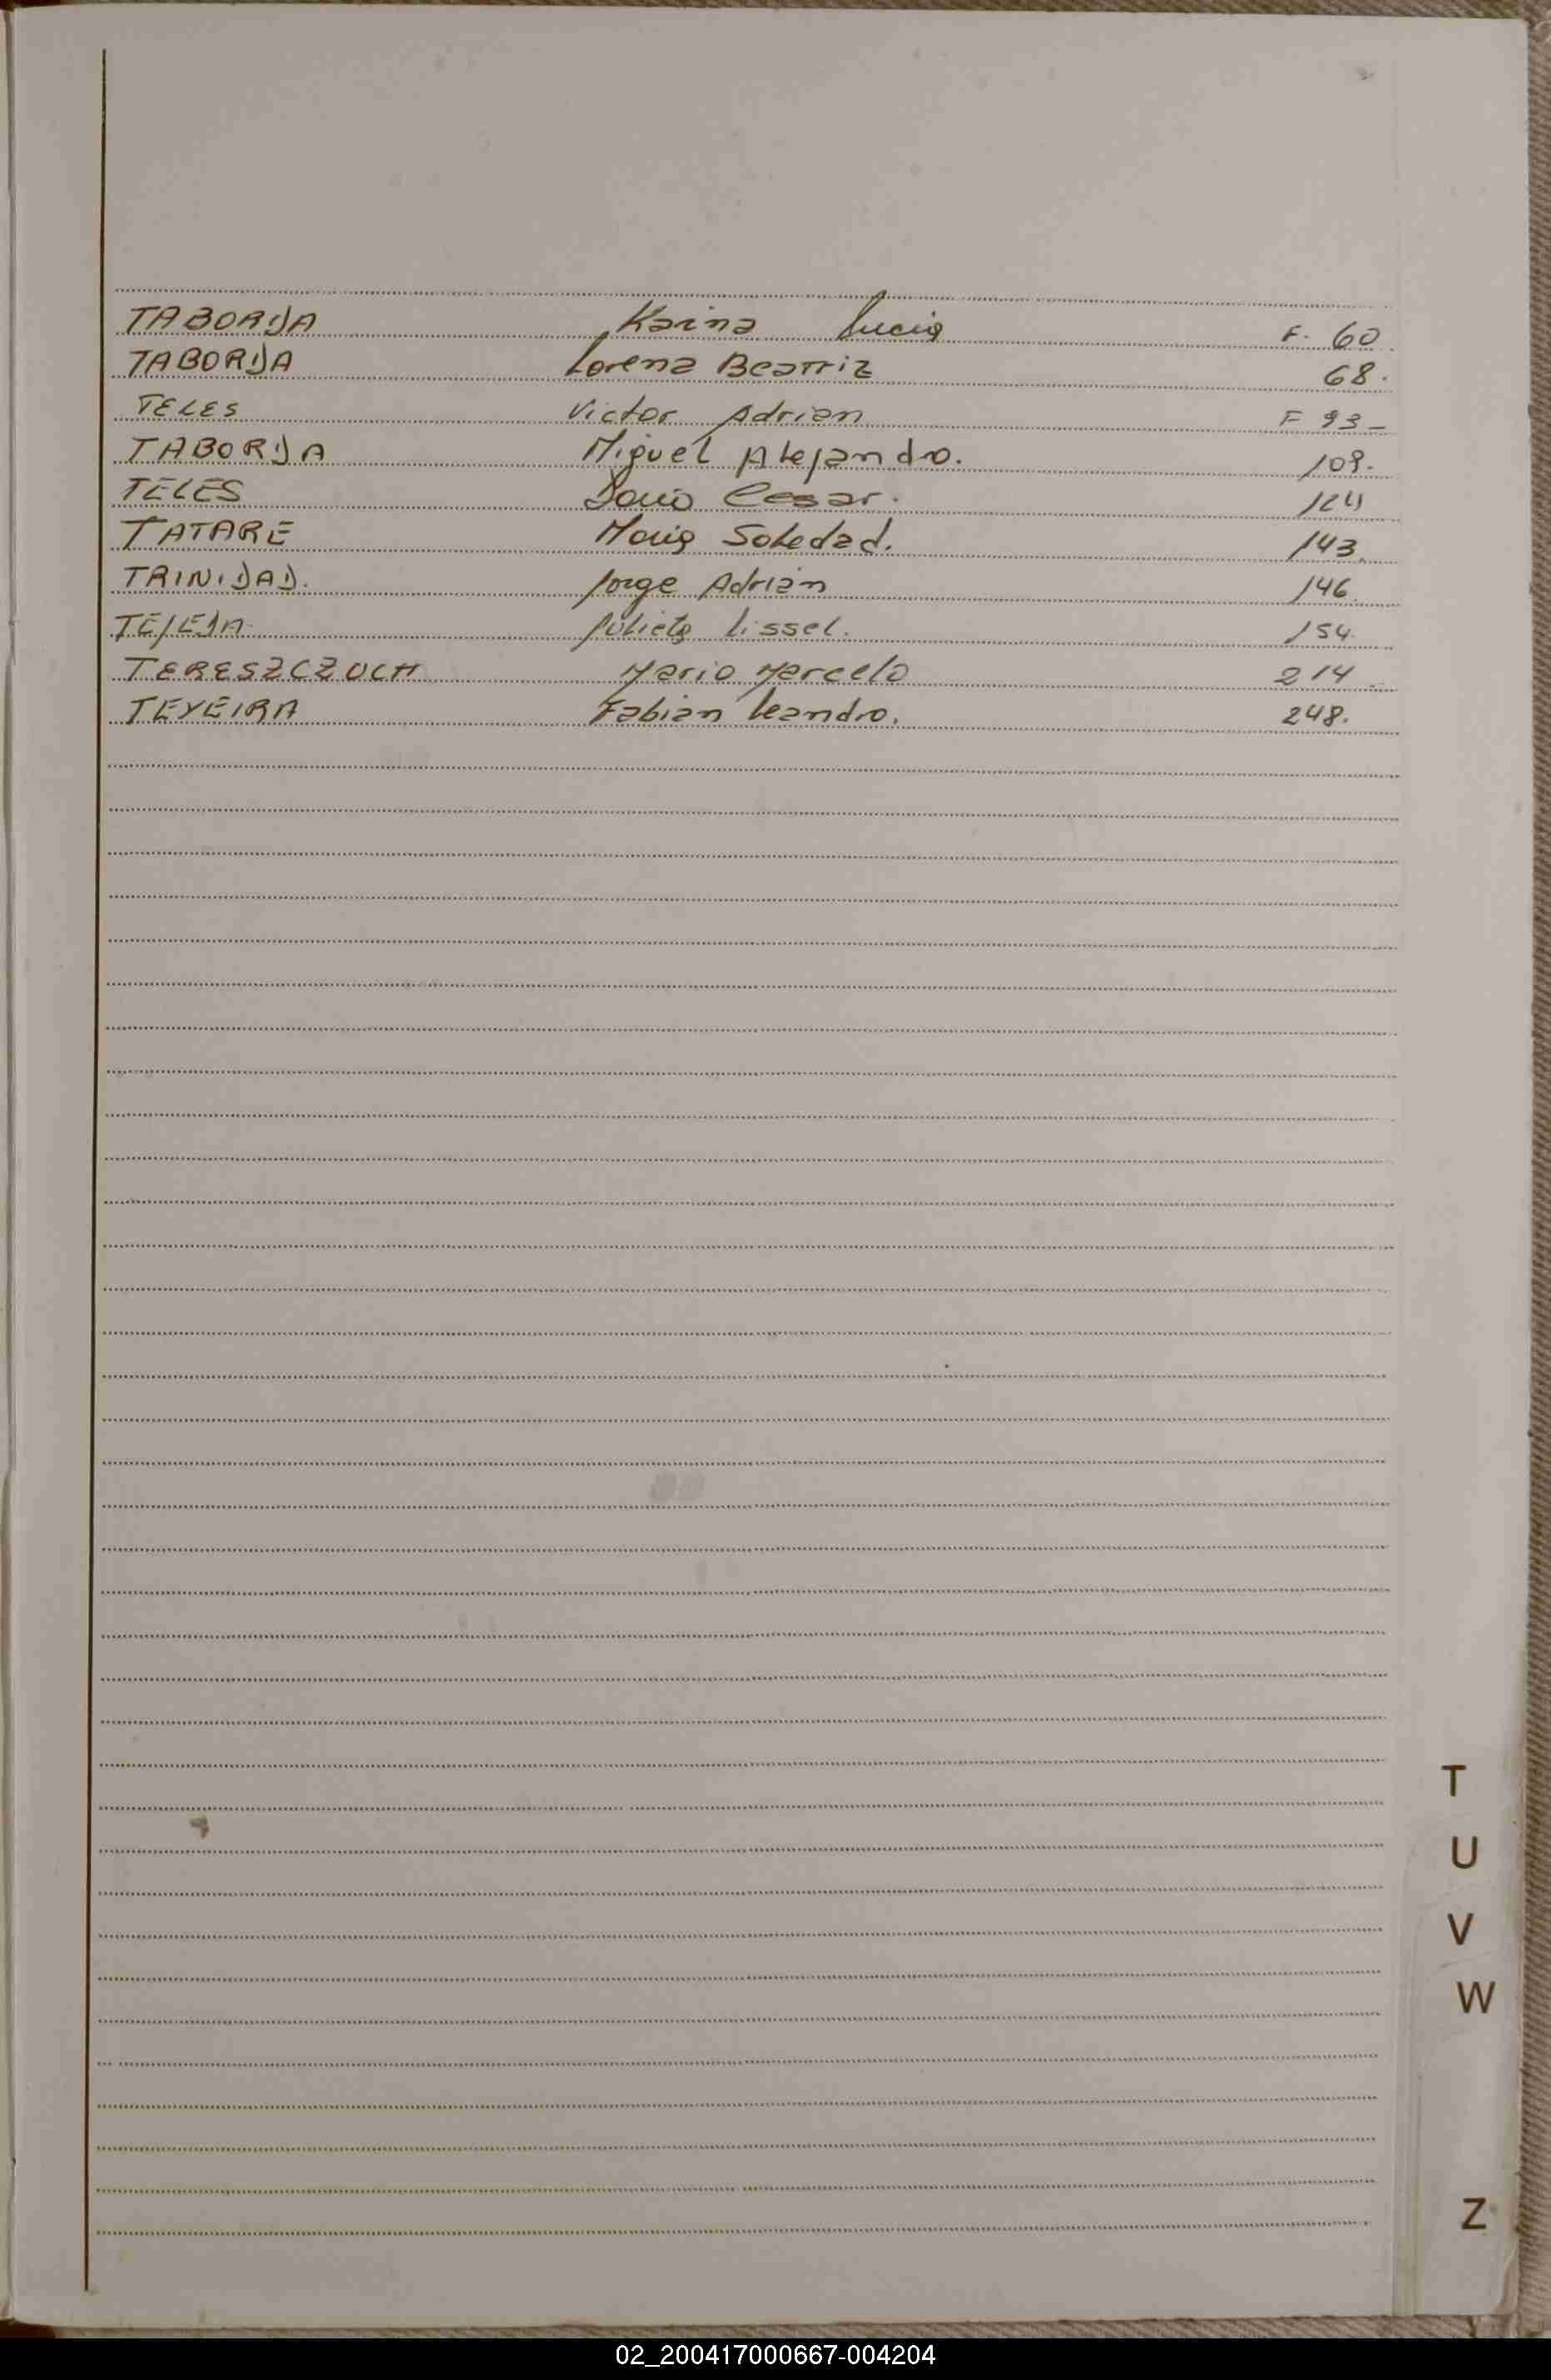 TABORDA Karina Lucia F. 60
TABORDA Lorena Beatriz 68.
TELES Victor Adrian F 93_
TABORDA Miguel Alejandro. 109.
TELES Dario Cesar. 124
TATARE Maria Soledad. 143.
TRINIDAD. Jorge Adrian 146.
TEJEDA Julieta Lissel. 154.
TERESZCZUCH Mario Marcelo 214
TEXEIRA Fabian Leandro. 248.
T
U
V
W
Z
02_200417000667-004204